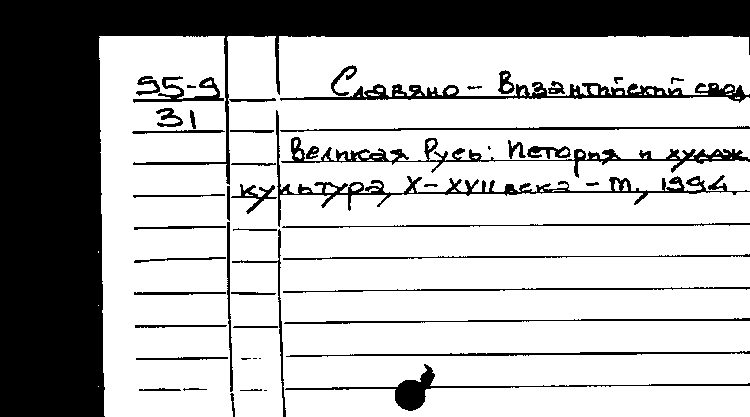 95-9
31
Славяно - Византийский свод
Великая Русь: История и худож
культура, X-XVII века - М., 1994.